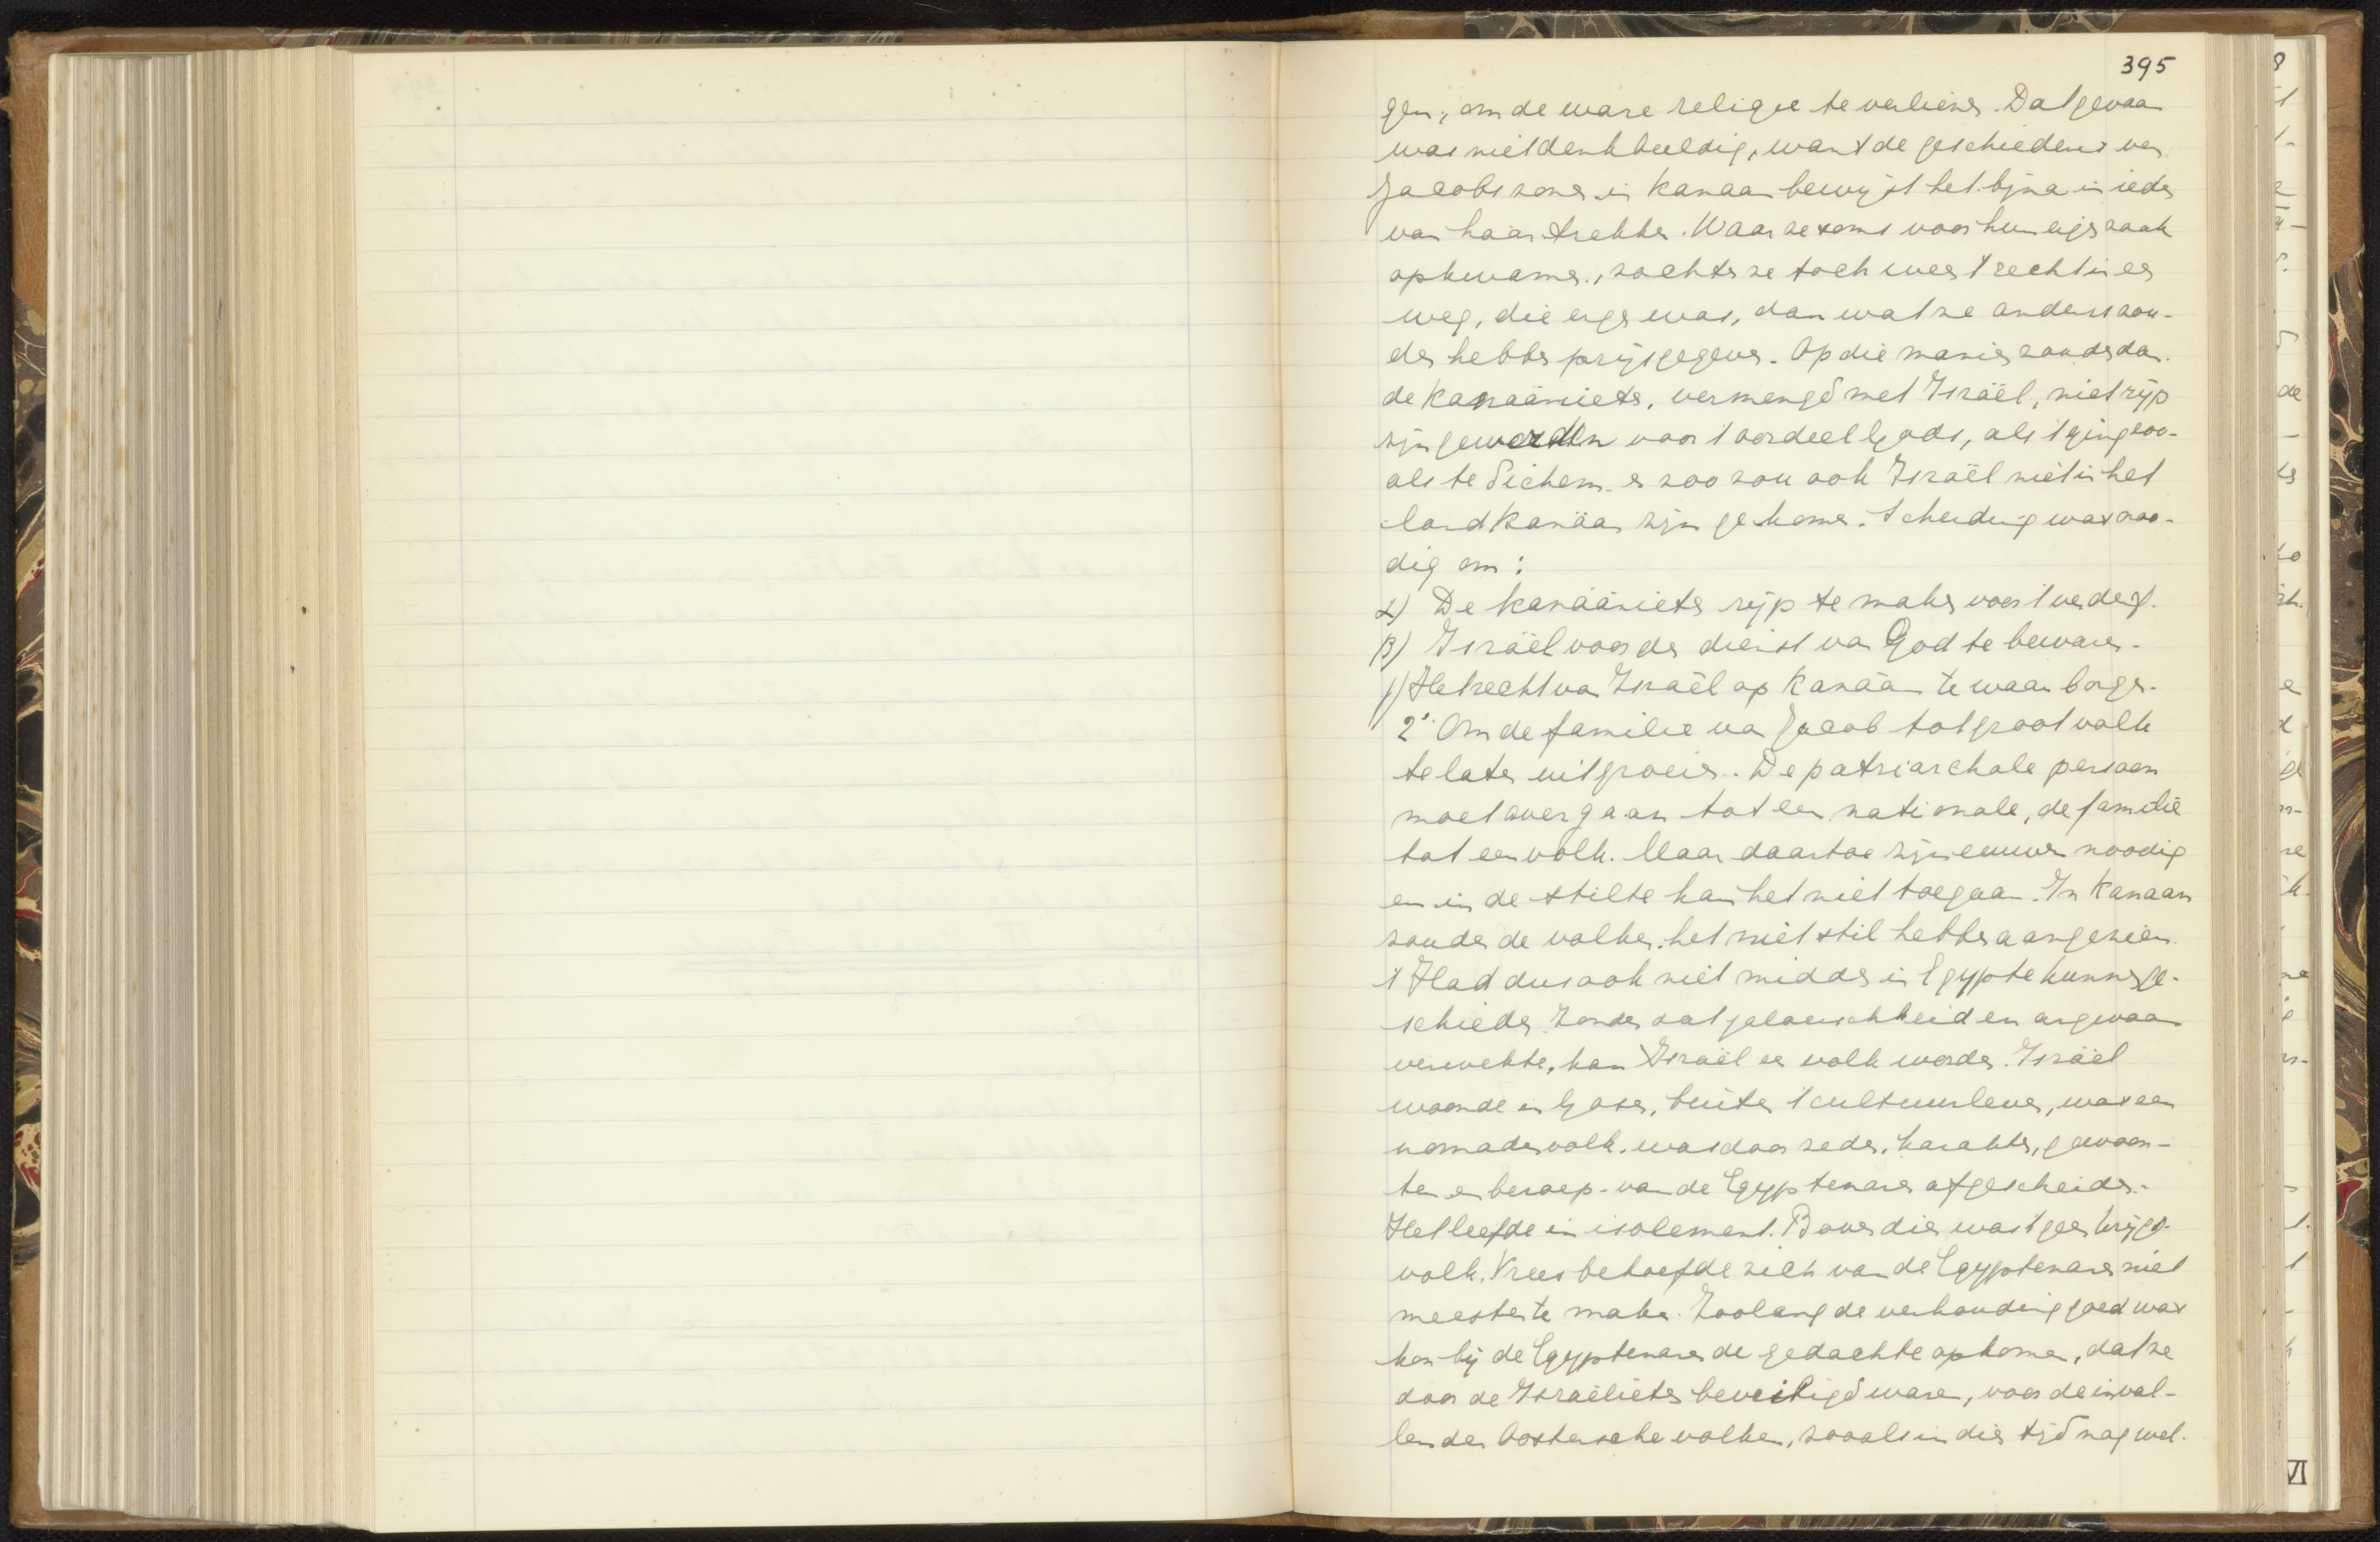 395
gen, om de ware religie te verliezen. Dat gevaar
was niet denkbeeldig, want de geschiedenis van
Jacobs zonen in Kanaan bewijst het bijna in ieder
van haar trekken. Waar ze soms voor hun eigen zaak
opkwamen, zochten ze toch weer 't recht in een
weg, die erger was, dan wat ze anders zou-
den hebben prijsgegeven. Op die manier zouden dan
de Kanaänieten, vermengd met Israël, niet rijp
zijn geworden voor 't oordeel Gods, als 't ging zoo-
als te Sichem en zoo zou ook Israël niet in het
land Kanäan zijn gekomen. Scheiding was noo-
dig om:
α) De Kanaänieten rijp te maken voor 't verderf.
β) Israël voor den dienst van God te bewaren.
γ) Het recht van Israël op Kanaän te waarborgen.
2° Om de familie van Jacob tot groot volk
te laten uitgroeien. De patriarchale persoon
moet overgaan tot een nationale, de familie
tot een volk. Maar daartoe zijn eeuwen noodig
en in de stilte kan het niet toegaan. In Kanaan
zouden de volken het niet stil hebben aangezien.
't Had dus ook niet midden in Egypte kunnen ge-
schieden. Zonder dat jaloerschheid en argwaan
verwekte, kan Israël een volk worden. Israël
woonde in Gosen, buiten 't cultuurleven, was een
nomadenvolk, was door zeden, karakter, gewoon-
ten en beroep van de Egyptenaren afgescheiden.
Het leefde in isolement. Bovendien was 't geen krijgs-
volk. Vrees behoefde zich van de Egyptenaren niet
meester te maken. Zoolang de verhouding goed was
kon bij de Egyptenaren de gedachte opkomen, dat ze
door de Israëlieten beveiligd waren, voor de inval-
lenden Oostersche volken, zooals in dien tijd nog wel
VI